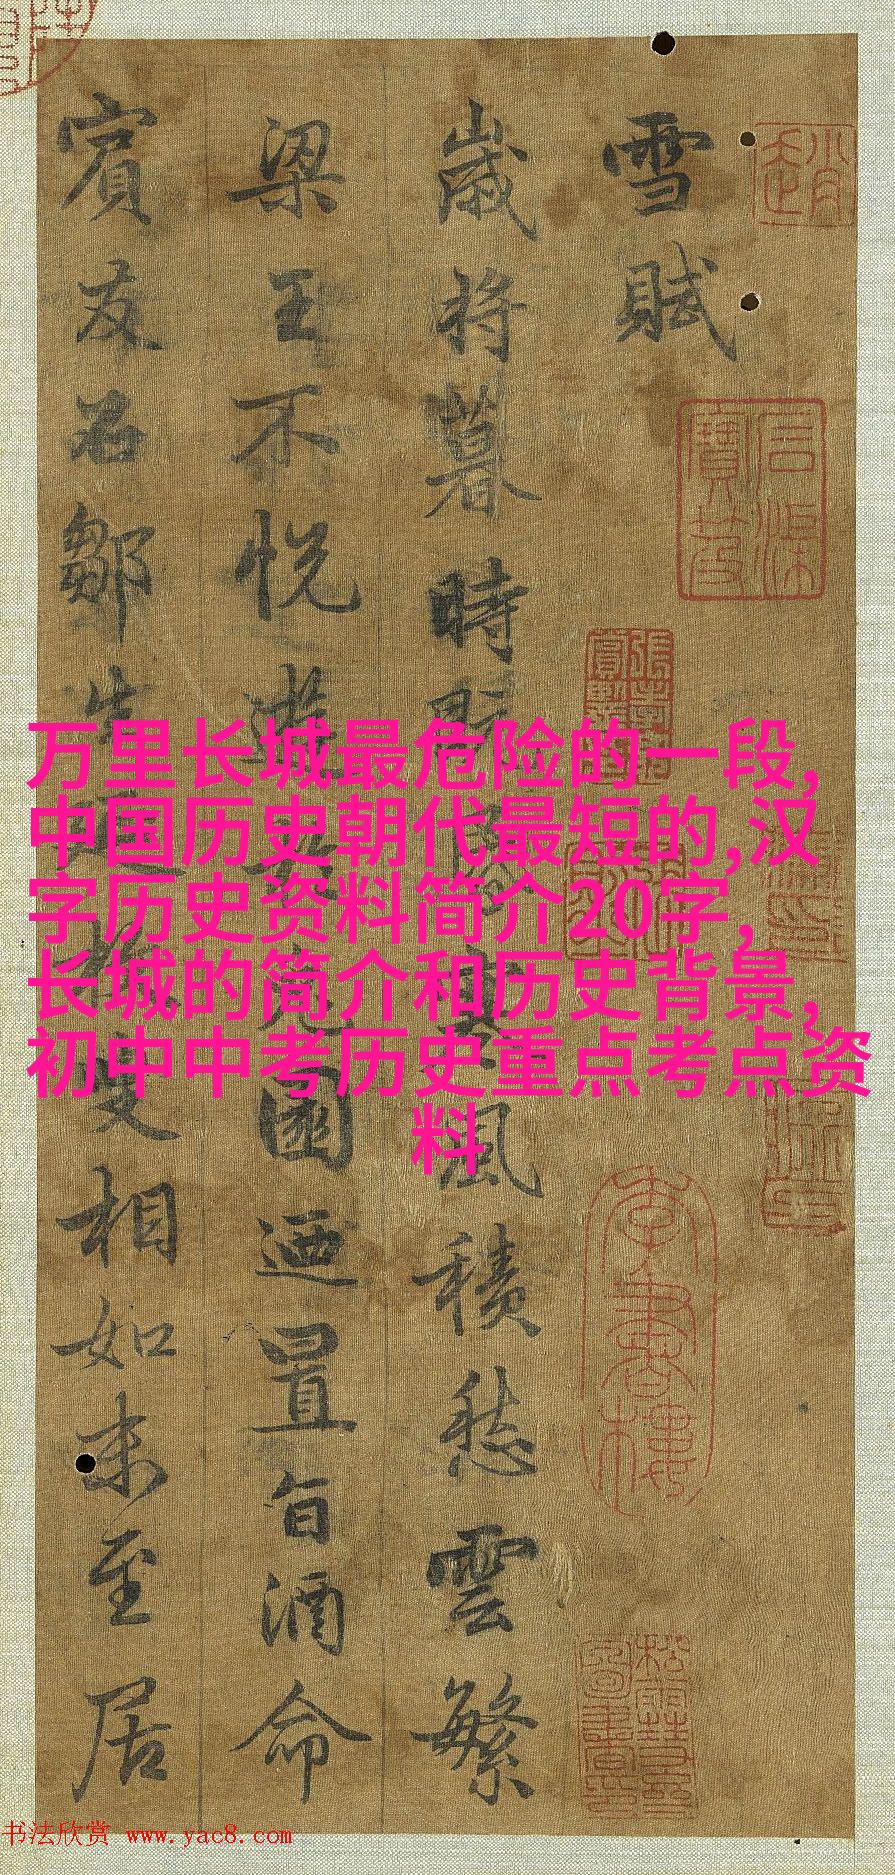 雪賦
歲将暮時風積愁雲繁
梁王不悦遊兔園迺置旨酒命
賓友召鄒生延枚叟相如末至居
万里长城最危险的一段,
中国历史朝代最短的,汉
字历史资料简介20字,
长城的简介和历史背景,
初中中考历史重点考点资
料
书法欣赏 www.yac8.com